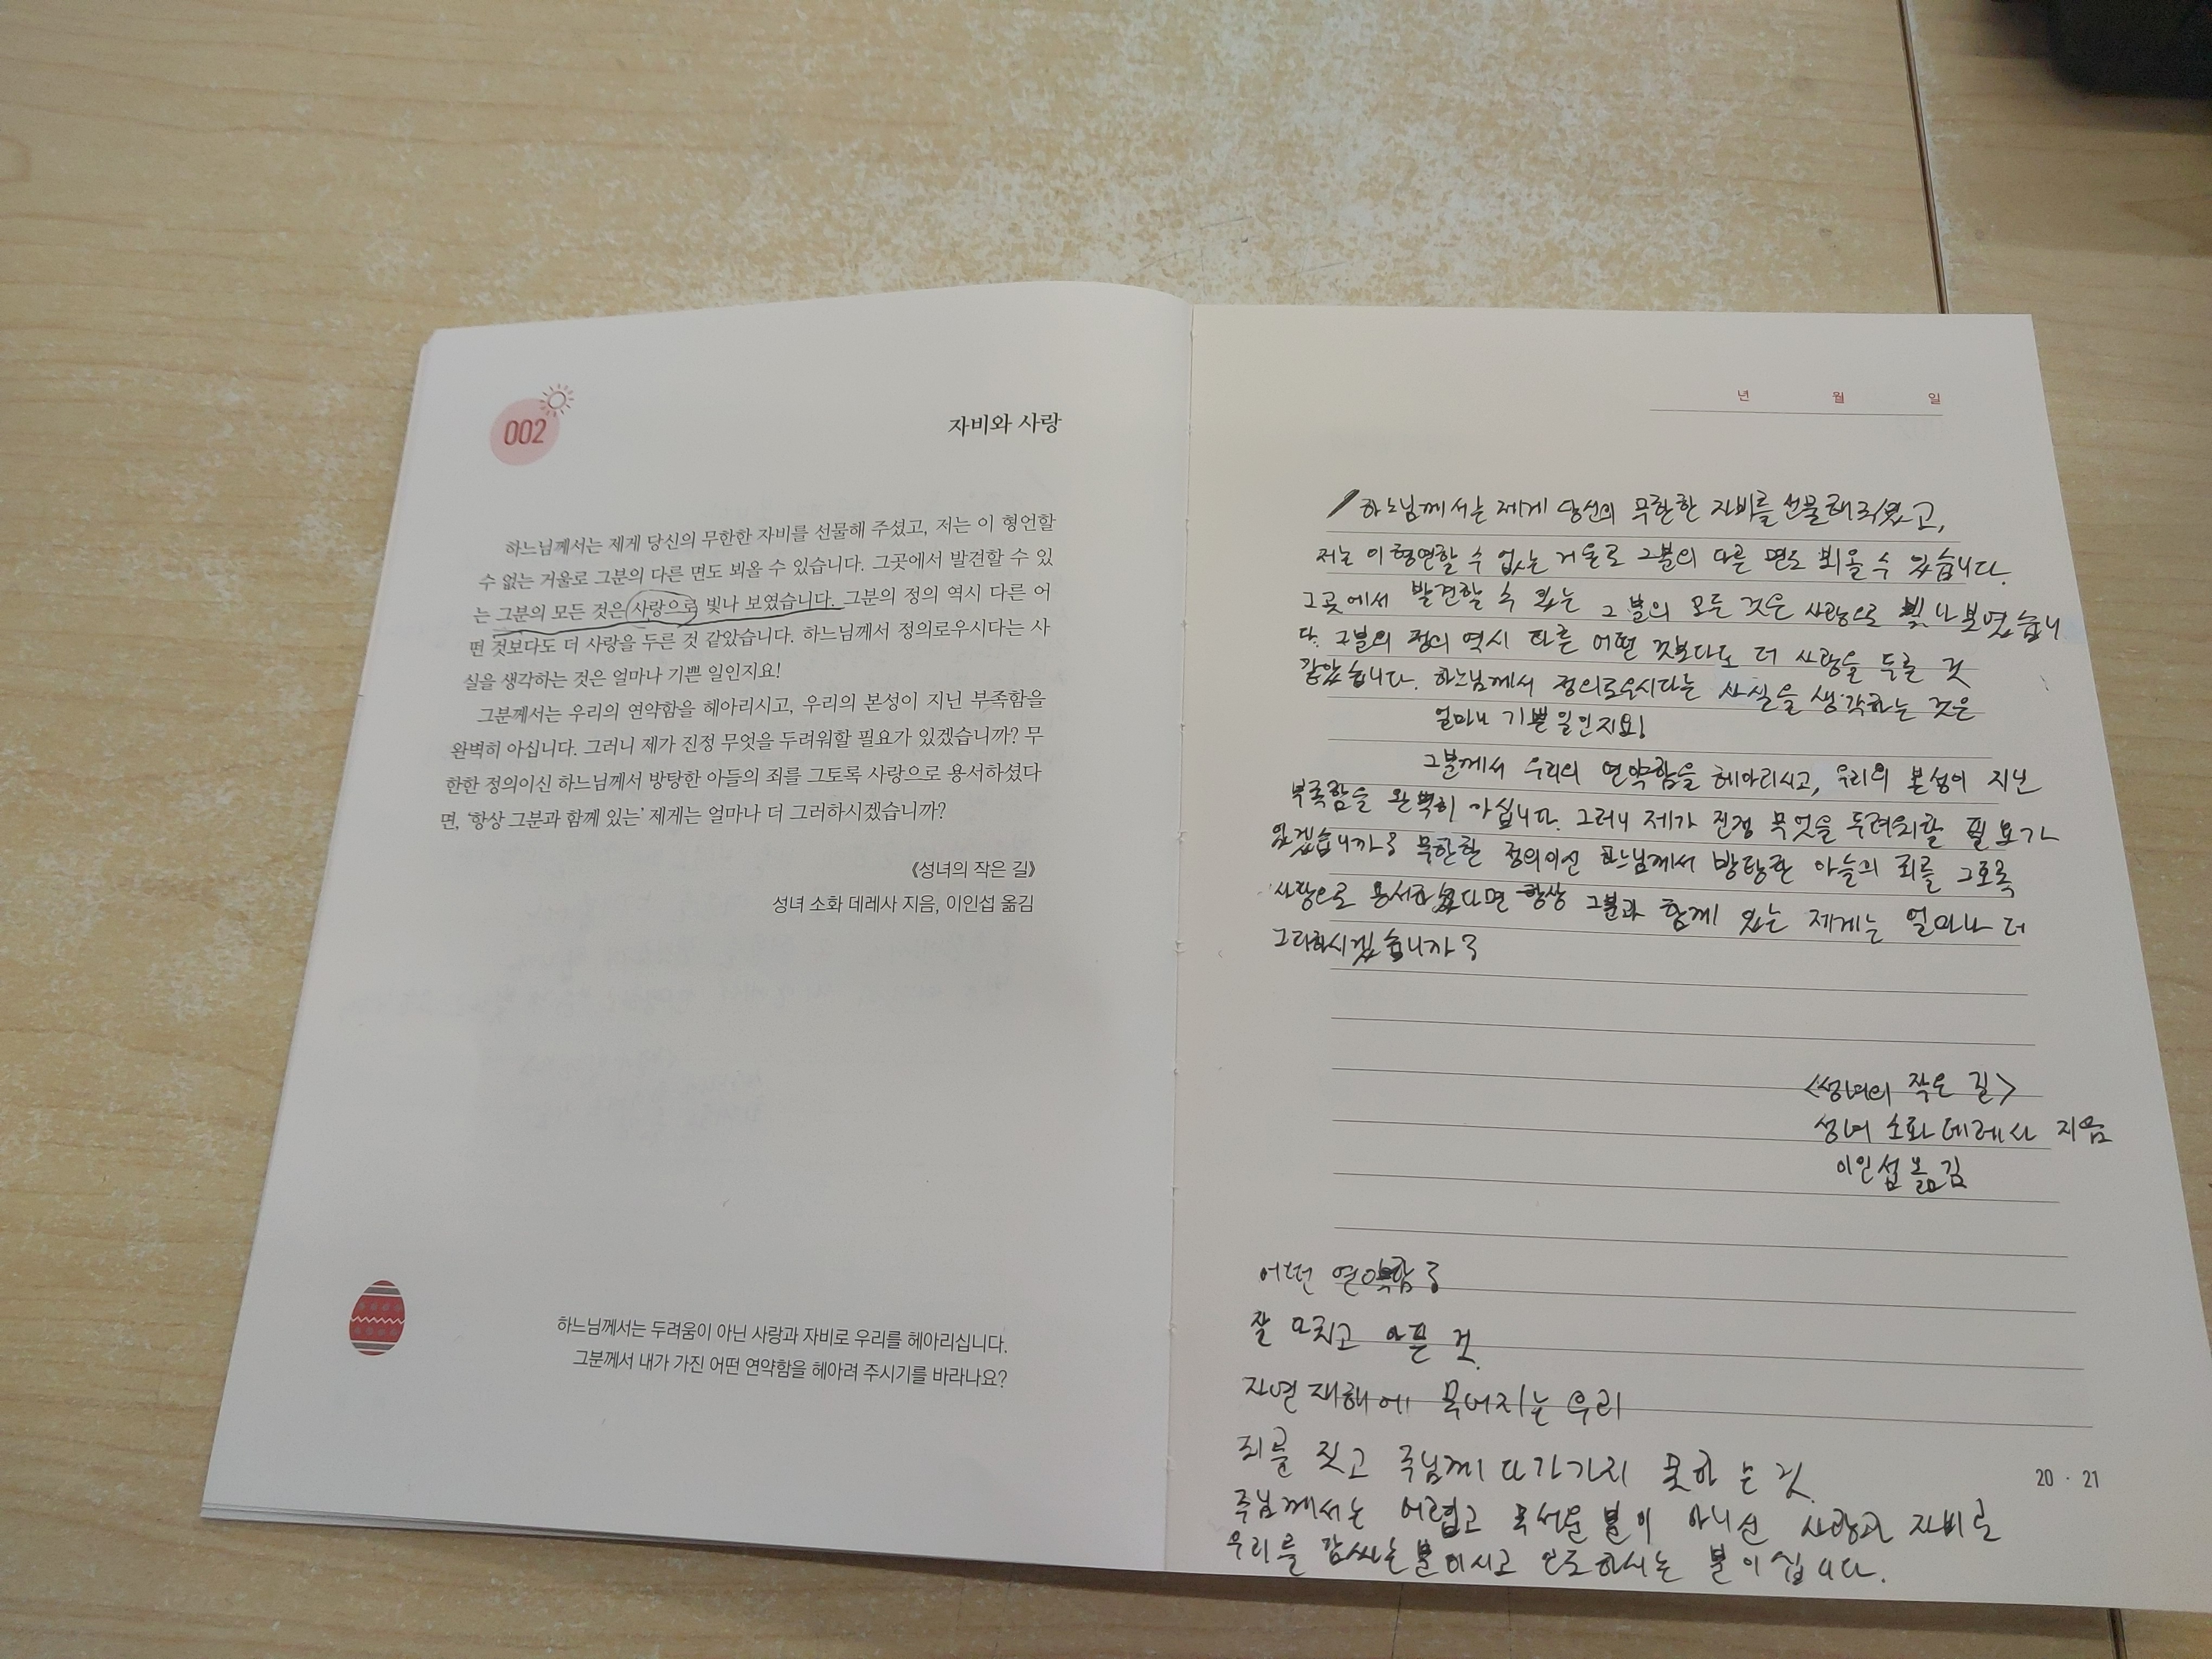 002
자비와 사랑
하느님께서는 제게 당신의 무한한 자비를 선물해 주셨고, 저는 이 형언할
수 없는 거울로 그분의 다른 면도 뵈올 수 있습니다. 그곳에서 발견할 수 있
는 그분의 모든 것은 사랑으로 빛나 보였습니다. 그분의 정의 역시 다른 어
떤 것보다도 더 사랑을 두른 것 같았습니다. 하느님께서 정의로우시다는 사
실을 생각하는 것은 얼마나 기쁜 일인지요!
그분께서는 우리의 연약함을 헤아리시고, 우리의 본성이 지닌 부족함을
완벽히 아십니다. 그러니 제가 진정 무엇을 두려워할 필요가 있겠습니까? 무
한한 정의이신 하느님께서 방탕한 아들의 죄를 그토록 사랑으로 용서하셨다
면, ‘항상 그분과 함께 있는’ 제게는 얼마나 더 그러하시겠습니까?
《성녀의 작은 길》
성녀 소화 데레사 지음, 이인섭 옮김
하느님께서는 두려움이 아닌 사랑과 자비로 우리를 헤아리십니다.
그분께서 내가 가진 어떤 연약함을 헤아려 주시기를 바라나요?
년 월 일
하느님께서는 제게 당신의 무한한 자비를 선물해주셨고,
저는 이 형언할 수 없는 거울로 그분의 다른 면도 뵈올 수 있습니다.
그곳에서 발견할 수 있는 그분의 모든 것은 사랑으로 빛나 보였습니
다. 그분의 정의 역시 다른 어떤 것보다도 더 사랑을 두른 것
같았습니다. 하느님께서 정의로우시다는 사실을 생각하는 것은
얼마나 기쁜 일인지요!
그분께서 우리의 연약함을 헤아리시고, 우리의 본성이 지닌
부족함을 완벽히 아십니다. 그러니 제가 진정 무엇을 두려워할 필요가
있겠습니까? 무한한 정의이신 하느님께서 방탕한 아들의 죄를 그토록
사랑으로 용서하셨다면 항상 그분과 함께 있는 제게는 얼마나 더
그러하시겠습니까?
<성녀의 작은 길>
성녀 소화 데레사 지음
이인섭 옮김
어떤 연약함?
잘 모르고 아픈 것.
자연재해에 무너지는 우리
죄를 짓고 주님께 다가가지 못하는 것.
20 · 21
주님께서는 어렵고 무서운 분이 아니신 사랑과 자비로
우리를 감싸는 분이시고 인도하시는 분이십니다.